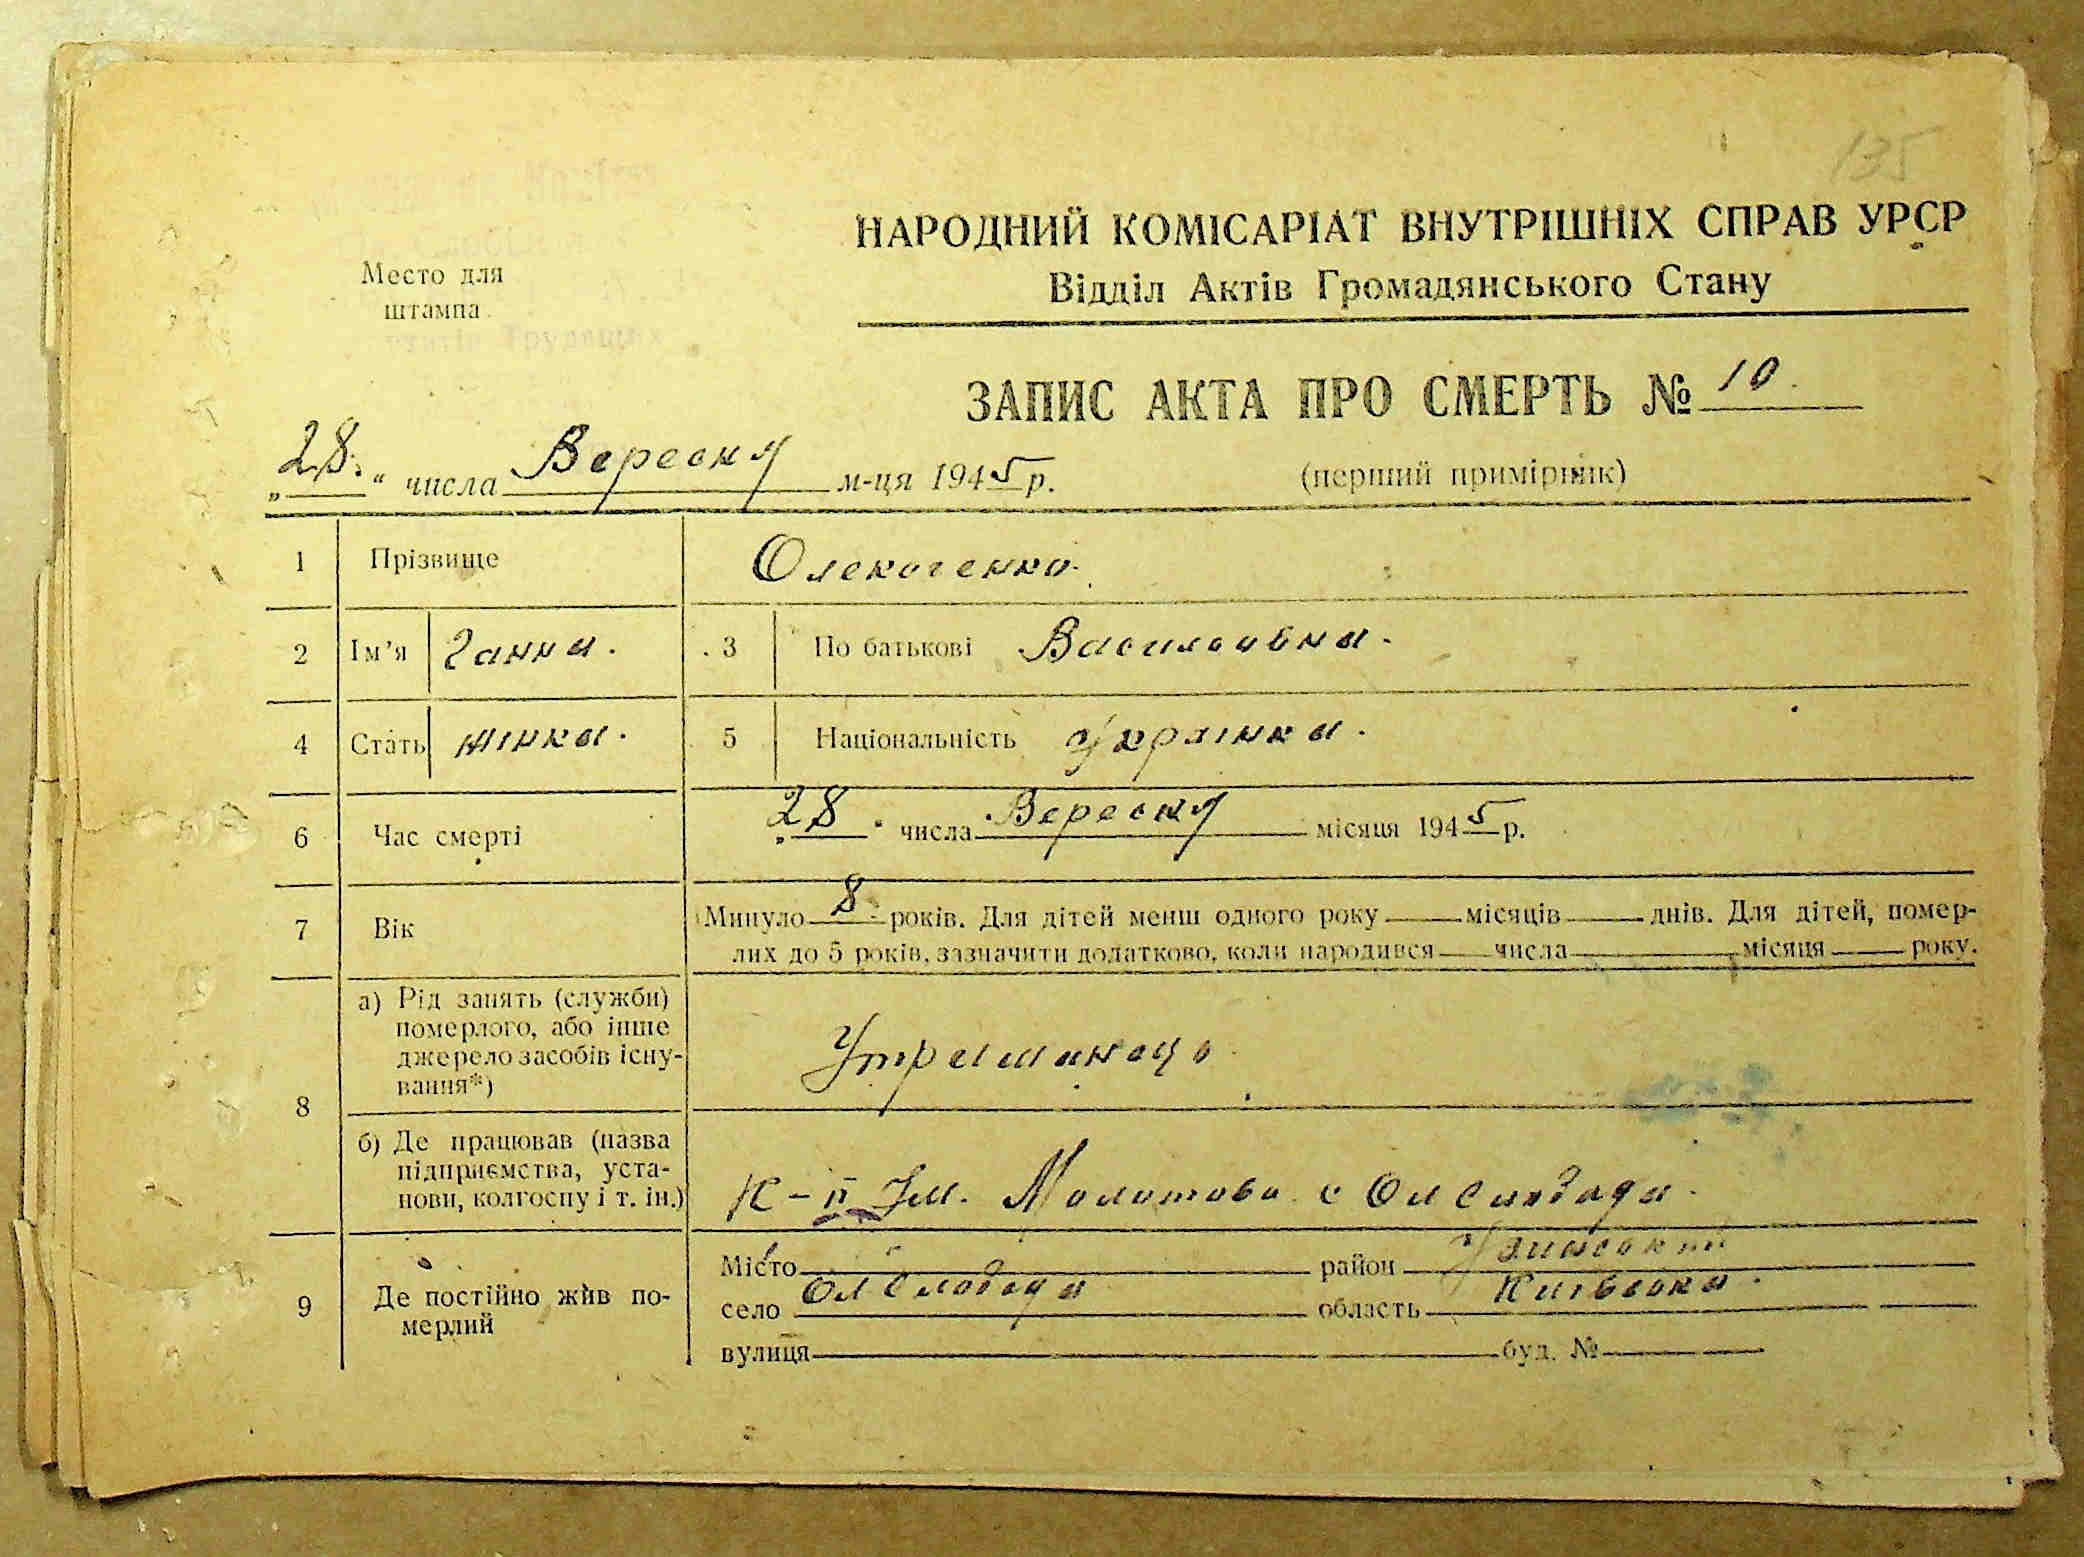 135
НАРОДНИЙ КОМІСАРІАТ ВНУТРІШНІХ СПРАВ УРСР
Відділ Актів Громадянського Стану
Место для
штампа
Трудящих
ЗАПИС АКТА ПРО СМЕРТЬ № 10
„28“ числа Вересня м-ця 1945 р. (перший примірник)
1 Прізвище
2 Ім'я Ганна. 3 По батькові Василовна.
4 Стать жінка. 5 Національність Українка.
6 Час смерті „28“ числа Вересня місяця 1945 р.
7 Вік Минуло 8 років. Для дітей менш одного року — місяців — днів. Для дітей, помер-
лих до 5 років, зазначити додатково, коли народився — числа — місяця — року.
8 а) Рід занять (служби)
померлого, або інше
джерело засобів існу-
вання*)
Утриманець
б) Де працював (назва
підприємства, уста-
нови, колгоспу і т. ін.)
К-п Ім. Молотова с Ол Слобода.
9 Де постійно жив по-
мерлий
Місто — район Узинський
село Ол Слобода область Київска.
вулиця — буд. № —